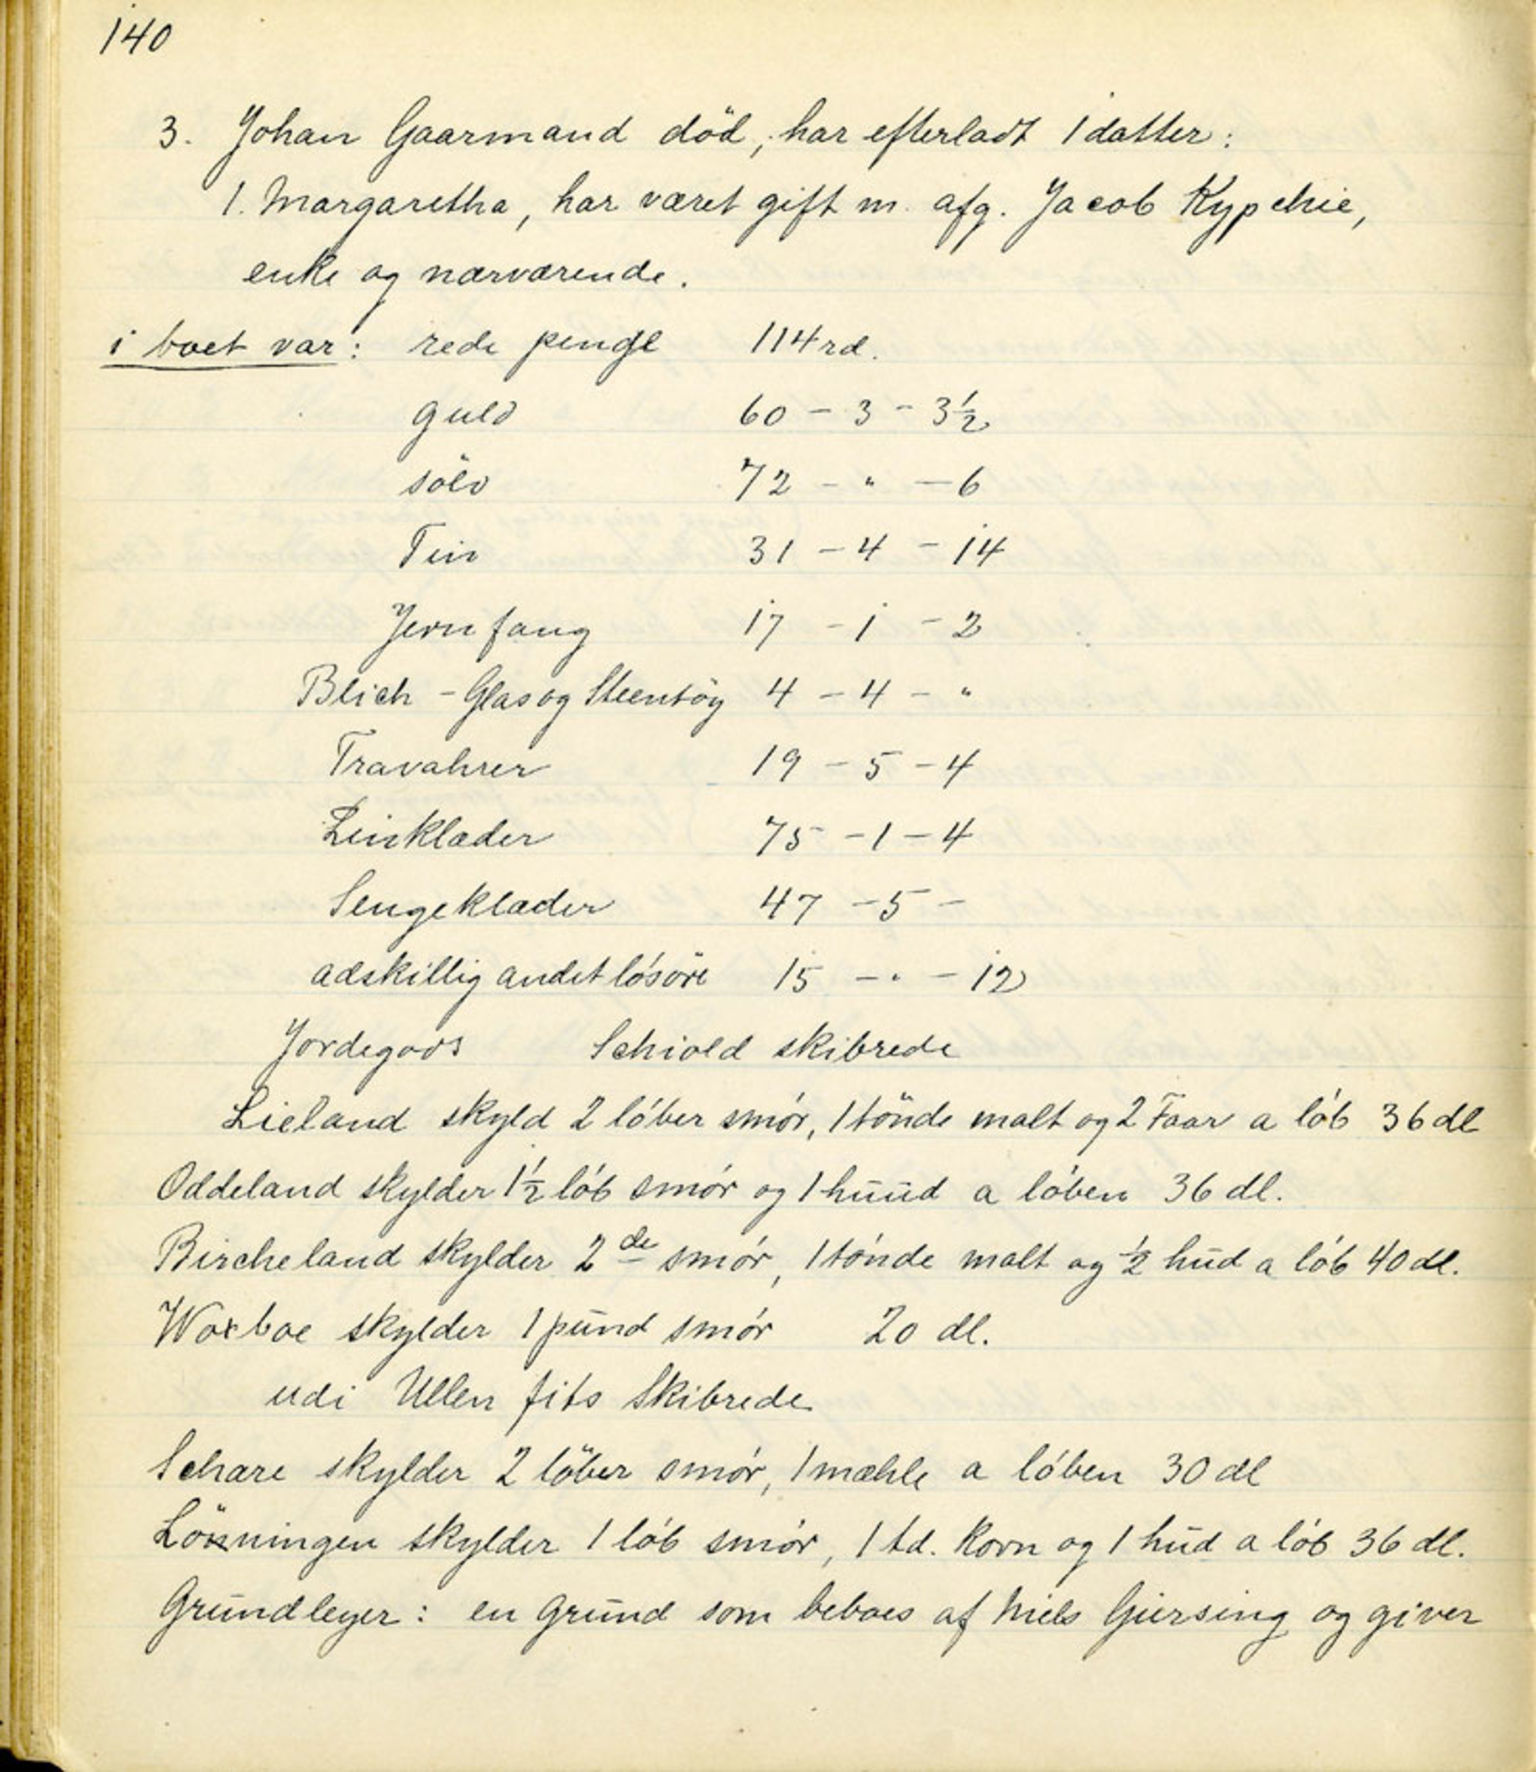 140
3. Johan Gaarmand död, har efterladt 1 datter:
1. Margaretha, har været gift m. afg. Jacob Kypchie,
enke og nærværende.
i boet var: rede penge 114 rd.
guld 60 - 3 - 3 1/2
sölv 72 - " - 6
Tin 31 - 4 - 14
Jernfang 17 - 1 - 2
Blich - Glas og Steentöy 4 - 4 - "
Travahrer 19 - 5 - 4
Linklæder 75 - 1 - 4
Sengeklæder 47 - 5 -
adskillig andet lösöre 15 - " - 12
Jordegods Schiold skibrede
Lieland skyld 2 löber smör, 1 tönde malt og 2 Faar a löb 36 dl
Oddeland skylder 1 1/2 löb smör og 1 huud a löben 36 dl.
Bircheland skylder 2 de smör, 1 tönde malt og 1/2 hud a löb 40 dl.
Woxboe skylder 1 pund smör 20 dl.
udi Ullen fits Skibrede
Schare skylder 2 löber smör, 1 mæhle a löben 30 dl
Lönningen skylder 1 löb smör, 1 td. korn og 1 hud a löb 36 dl.
Grundleyer: en Grund som beboes af Niels Giersing og giver